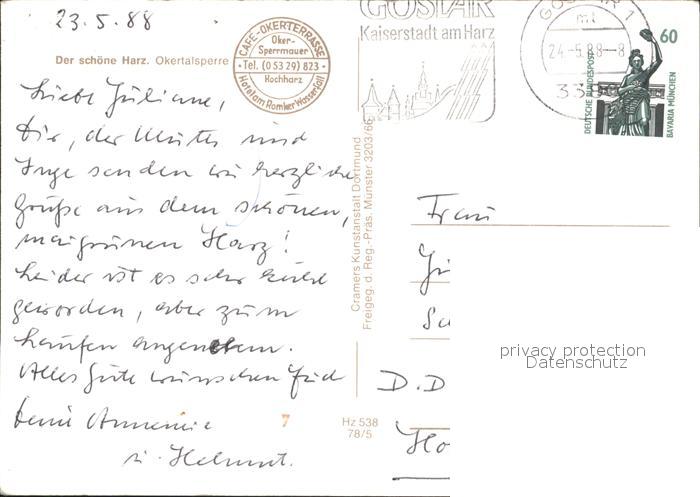 23.5.88
Der schöne Harz. Okertalsperre
CAFE-OKERTERRASSE
Oker-
Sperrmauer
Tel. (0 53 29) 823
Hochharz
Hotel am Romker Wasserfall
GOSLAR
Kaiserstadt am Harz
GOSLAR 1
mt
24.-5.88-8
33
60
DEUTSCHE BUNDESPOST
BAVARIA MÜNCHEN
Liebe Juliane,
Dir, der Mutter und
Inge senden wir herzliche
Grüße aus dem schönen,
maigrünen Harz!
Leider ist es sehr kühl
geworden, aber zum
Laufen angenehm.
Alles Gute wünschen Euch
Annemie
u. Helmut.
Cramers Kunstanstalt Dortmund
Freigeg. d. Reg.-Präs. Münster 3203/66
7
Hz 538
78/5
Frau
D.D
Ho
privacy protection
Datenschutz